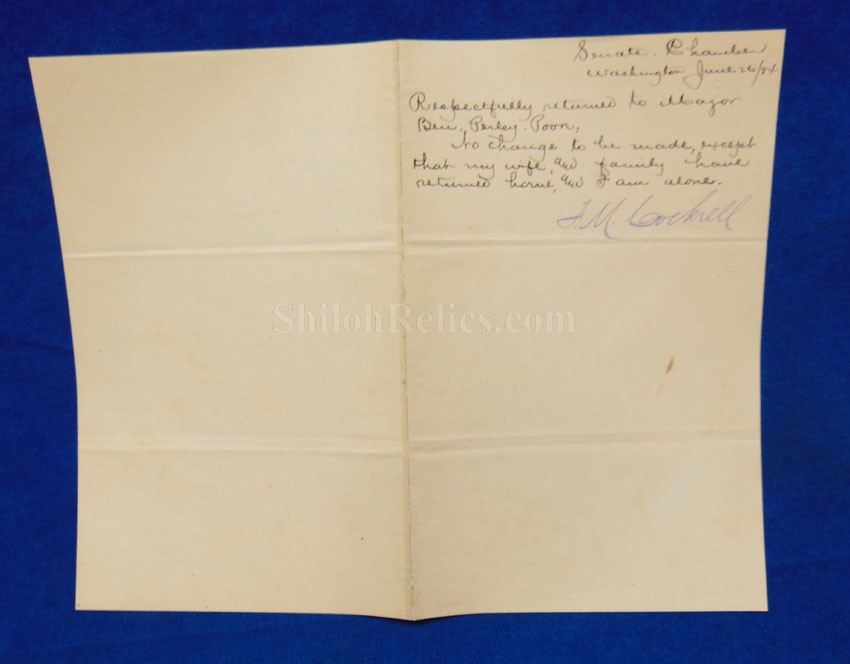 Senate Chamber
Washington June 26/84
Respectfully returned to Major
Ben, Perley Poore,
No change to be made, except
that my wife, and family have
returned home, and I am alone.
F M Cockrell
ShilohRelics.com